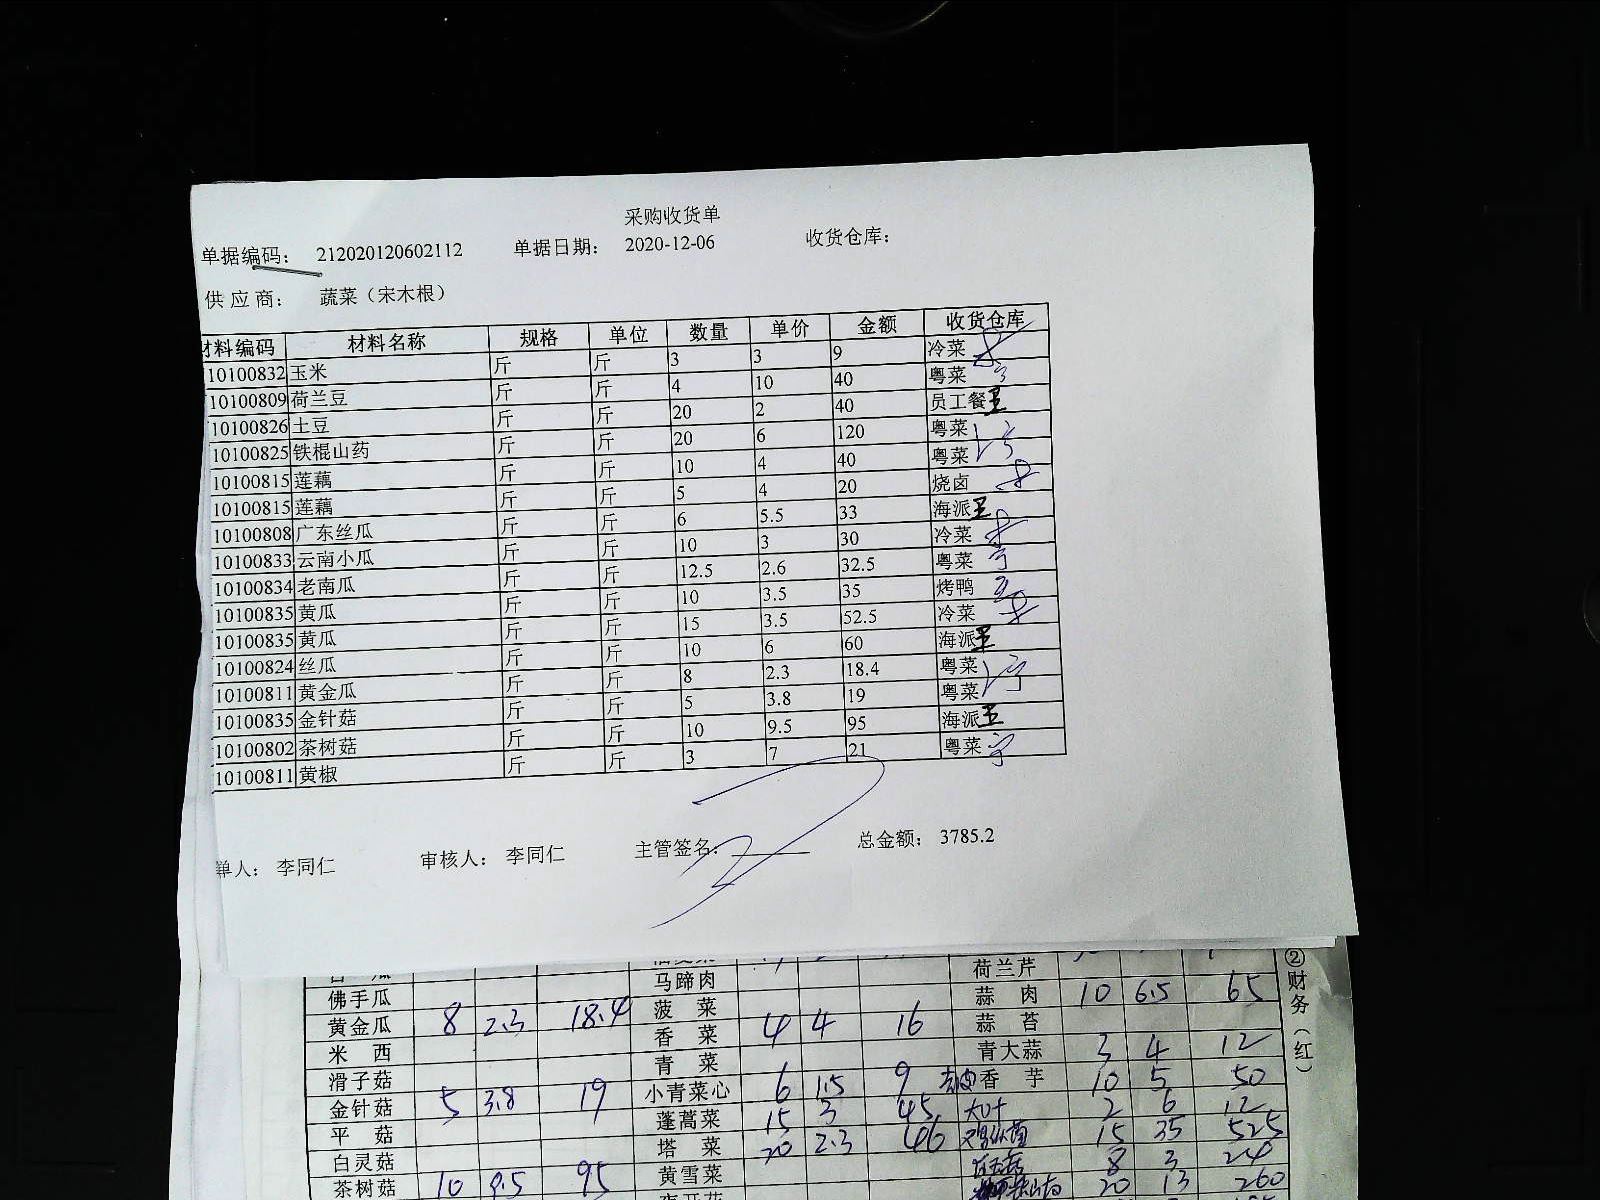 采购收货单
单据编码： 212020120602112 单据日期： 2020-12-06 收货仓库：
供应商： 蔬菜（宋木根）
材料编码 材料名称 规格 单位 数量 单价 金额 收货仓库
10100832 玉米 斤 斤 3 3 9 冷菜
10100809 荷兰豆 斤 斤 4 10 40 粤菜
10100826 土豆 斤 斤 20 2 40 员工餐 王
10100825 铁棍山药 斤 斤 20 6 120 粤菜
10100815 莲藕 斤 斤 10 4 40 粤菜
10100815 莲藕 斤 斤 5 4 20 烧卤
10100808 广东丝瓜 斤 斤 6 5.5 33 海派 王
10100833 云南小瓜 斤 斤 10 3 30 冷菜
10100834 老南瓜 斤 斤 12.5 2.6 32.5 粤菜
10100835 黄瓜 斤 斤 10 3.5 35 烤鸭
10100835 黄瓜 斤 斤 15 3.5 52.5 冷菜
10100824 丝瓜 斤 斤 10 6 60 海派 王
10100811 黄金瓜 斤 斤 8 2.3 18.4 粤菜
10100835 金针菇 斤 斤 5 3.8 19 粤菜
10100802 茶树菇 斤 斤 10 9.5 95 海派 王
10100811 黄椒 斤 斤 3 7 21 粤菜
单人： 李同仁 审核人： 李同仁 主管签名： 总金额： 3785.2
荷兰芹
佛手瓜 马蹄肉 蒜肉 10 6.5 65
黄金瓜 8 2.3 18.4 菠菜 蒜苔
米西 香菜 4 4 16 青大蒜 3 4 12
滑子菇 青菜 去皮香芋 10 5 50
金针菇 5 3.8 19 小青菜心 6 1.5 9 大叶 2 6 12
平菇 蓬蒿菜 15 3 45 15 35 525
白灵菇 塔菜 20 2.3 46 8 3 24
茶树菇 10 9.5 95 黄雪菜 20 13 260
②财务（红）